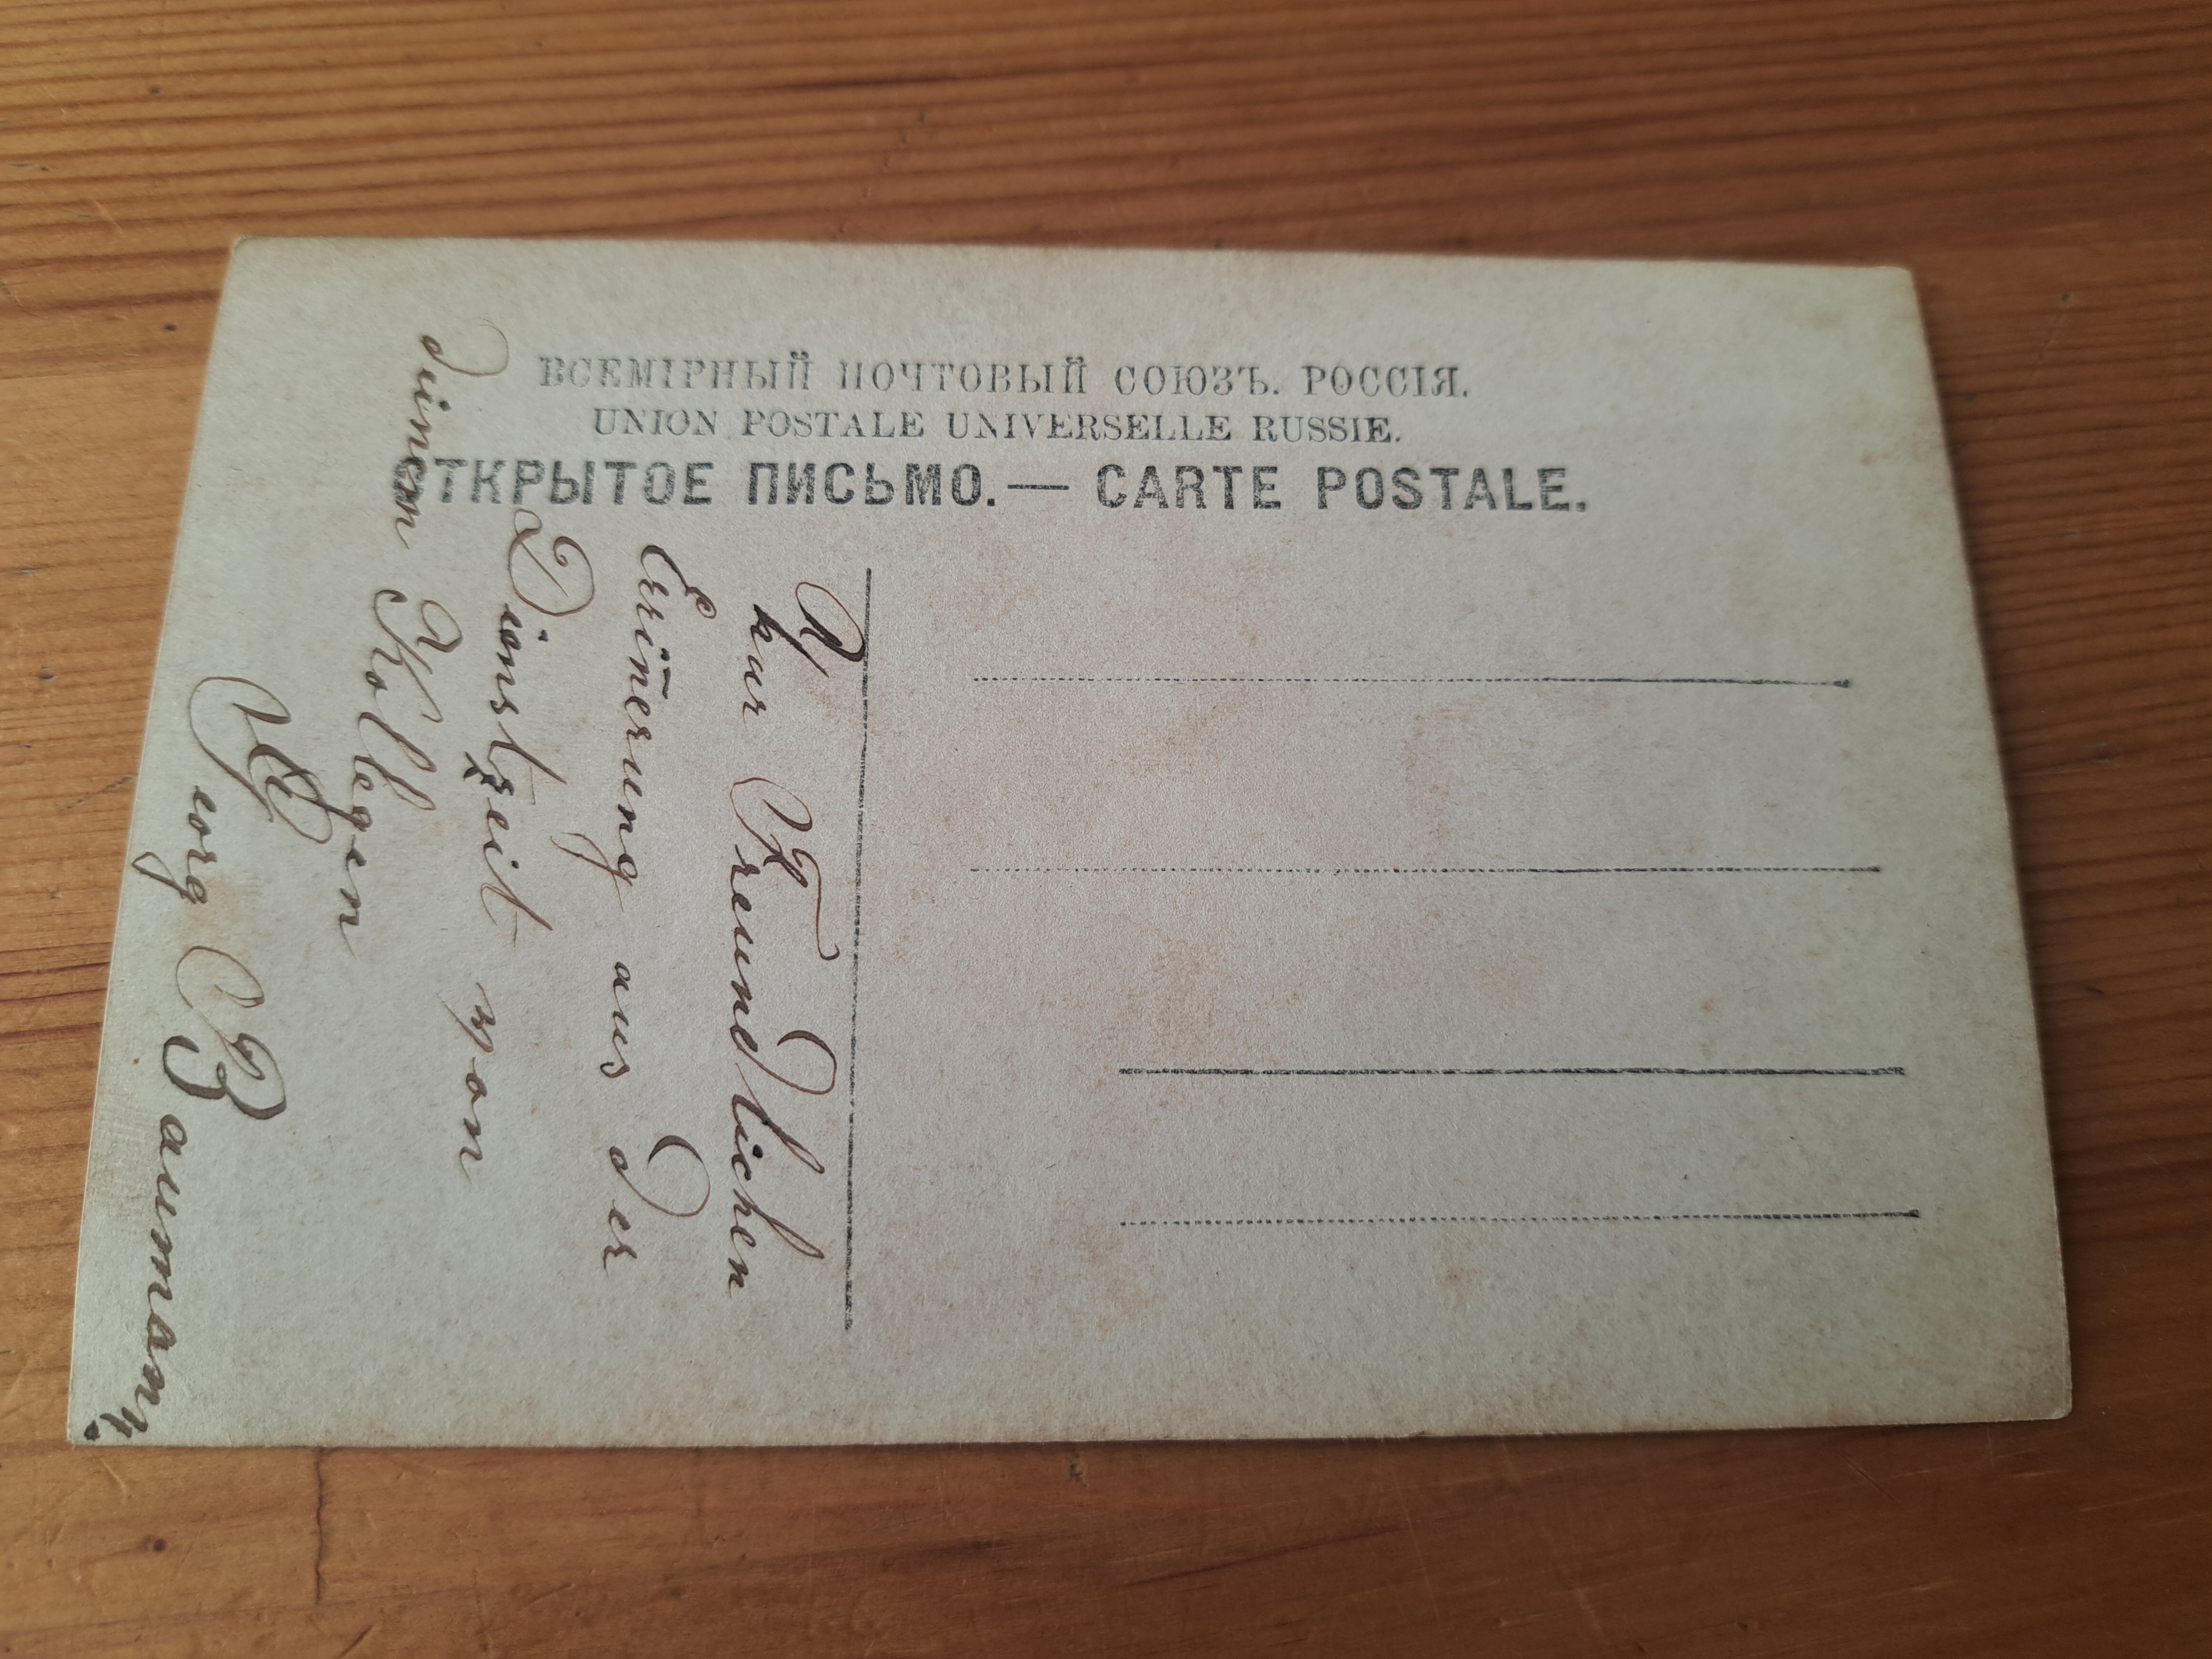 ВСЕМІРНЫЙ ПОЧТОВЫЙ СОЮЗЪ. РОССІЯ.
UNION POSTALE UNIVERSELLE RUSSIE.
ОТКРЫТОЕ ПИСЬМО.— CARTE POSTALE.
Zur Freundlichen
Erin̄erung aus der
Dienstzeit von
deinem Kollegen
Georg Baumann.